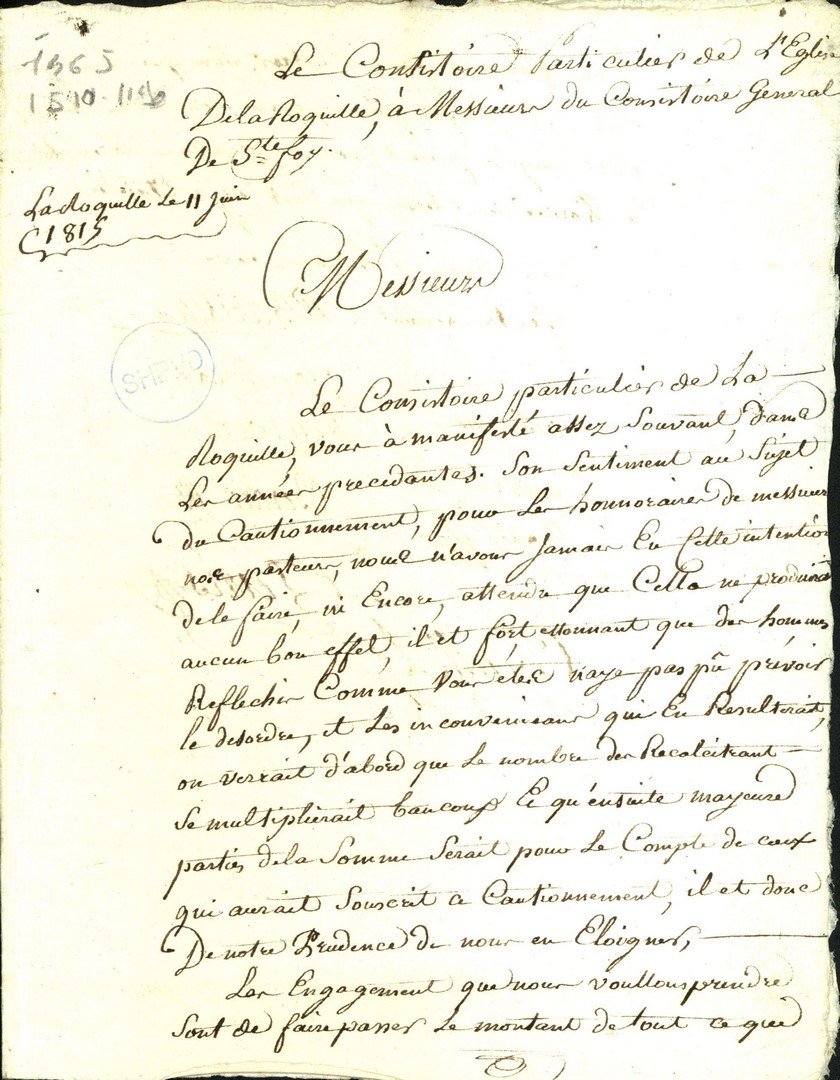 1365
Le Consistoire Particulier de L'Eglise
De la Roquille, à Messieurs du Consistoire General
De Ste foy.
La Roquille Le 11 Juin
1815
Messieurs
SHPVD
Le Consistoire particulier de La
Roquille, vous à manifesté assez Souvant, dans
Les années precedantes. Son Sentiment au Sujet
du Cautionnement, pour Les honnoraires de messieurs
nos pasteurs, nous n'avons Jamais Eu Cette intention
de le faire, ni Encore, attendu que Cella ne produirait
aucun bon effet, il et fort ettonnant que des hommes
Reflechis Comme Vous etes n'aye pas pû prévoir
le desordre, et Les inconvenieans qui En Resulterait,
on verrait d'abord que Le nombre des Recalcitrant
Se multiplierait baucoup Et qu'ensuite mayeure
partie de la Somme Serait pour Le Compte de ceux
qui aurait Souscrit a Cautionnement, il et donc
De notre Prudence de nous en Eloigner,
Les Engagement que nous voullons prendre
Sont de faire passer Le montant de tout ce qui